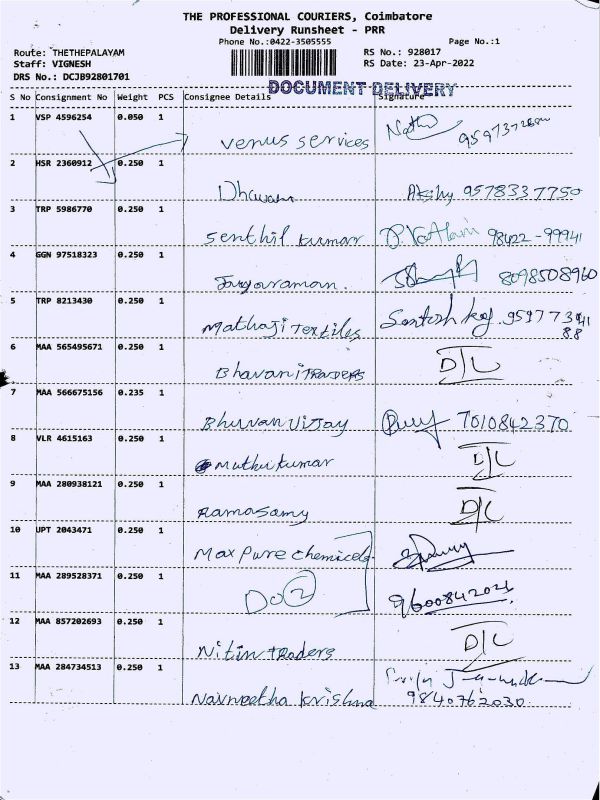 THE PROFESSIONAL COURIERS, Coimbatore
Delivery Runsheet - PRR
Phone No.:0422-3505555
Page No.:1
Route: THETHEPALAYAM
RS No.: 928017
Staff: VIGNESH
RS Date: 23-Apr-2022
DRS No.: DCJB92801701
DOCUMENT DELIVERY
S No Consignment No Weight PCS Consignee Details Signature
1 VSP 4596254 0.050 1
Venus Services
2 HSR 2360912 0.250 1
Dhwam 9578337750
3 TRP 5986770 0.250 1
Senthil kumar 98422-99941
4 GGN 97518323 0.250 1
Jayaraman. 8098508960
5 TRP 8213430 0.250 1
Mathaji Textiles Santosh
6 MAA 565495671 0.250 1
Bhavani TRADERS D/L
7 MAA 566675156 0.235 1
Bhuvan Vijjay 7010842370
8 VLR 4615163 0.250 1
Muthukumar D/L
9 MAA 280938121 0.250 1
Ramasamy D/L
10 UPT 2043471 0.250 1
Max Pure Chemicels
11 MAA 289528371 0.250 1
Do 2 9600842021
12 MAA 857202693 0.250 1
Nitin Traders D/L
13 MAA 284734513 0.250 1
Navneetha Krishna 9840762030